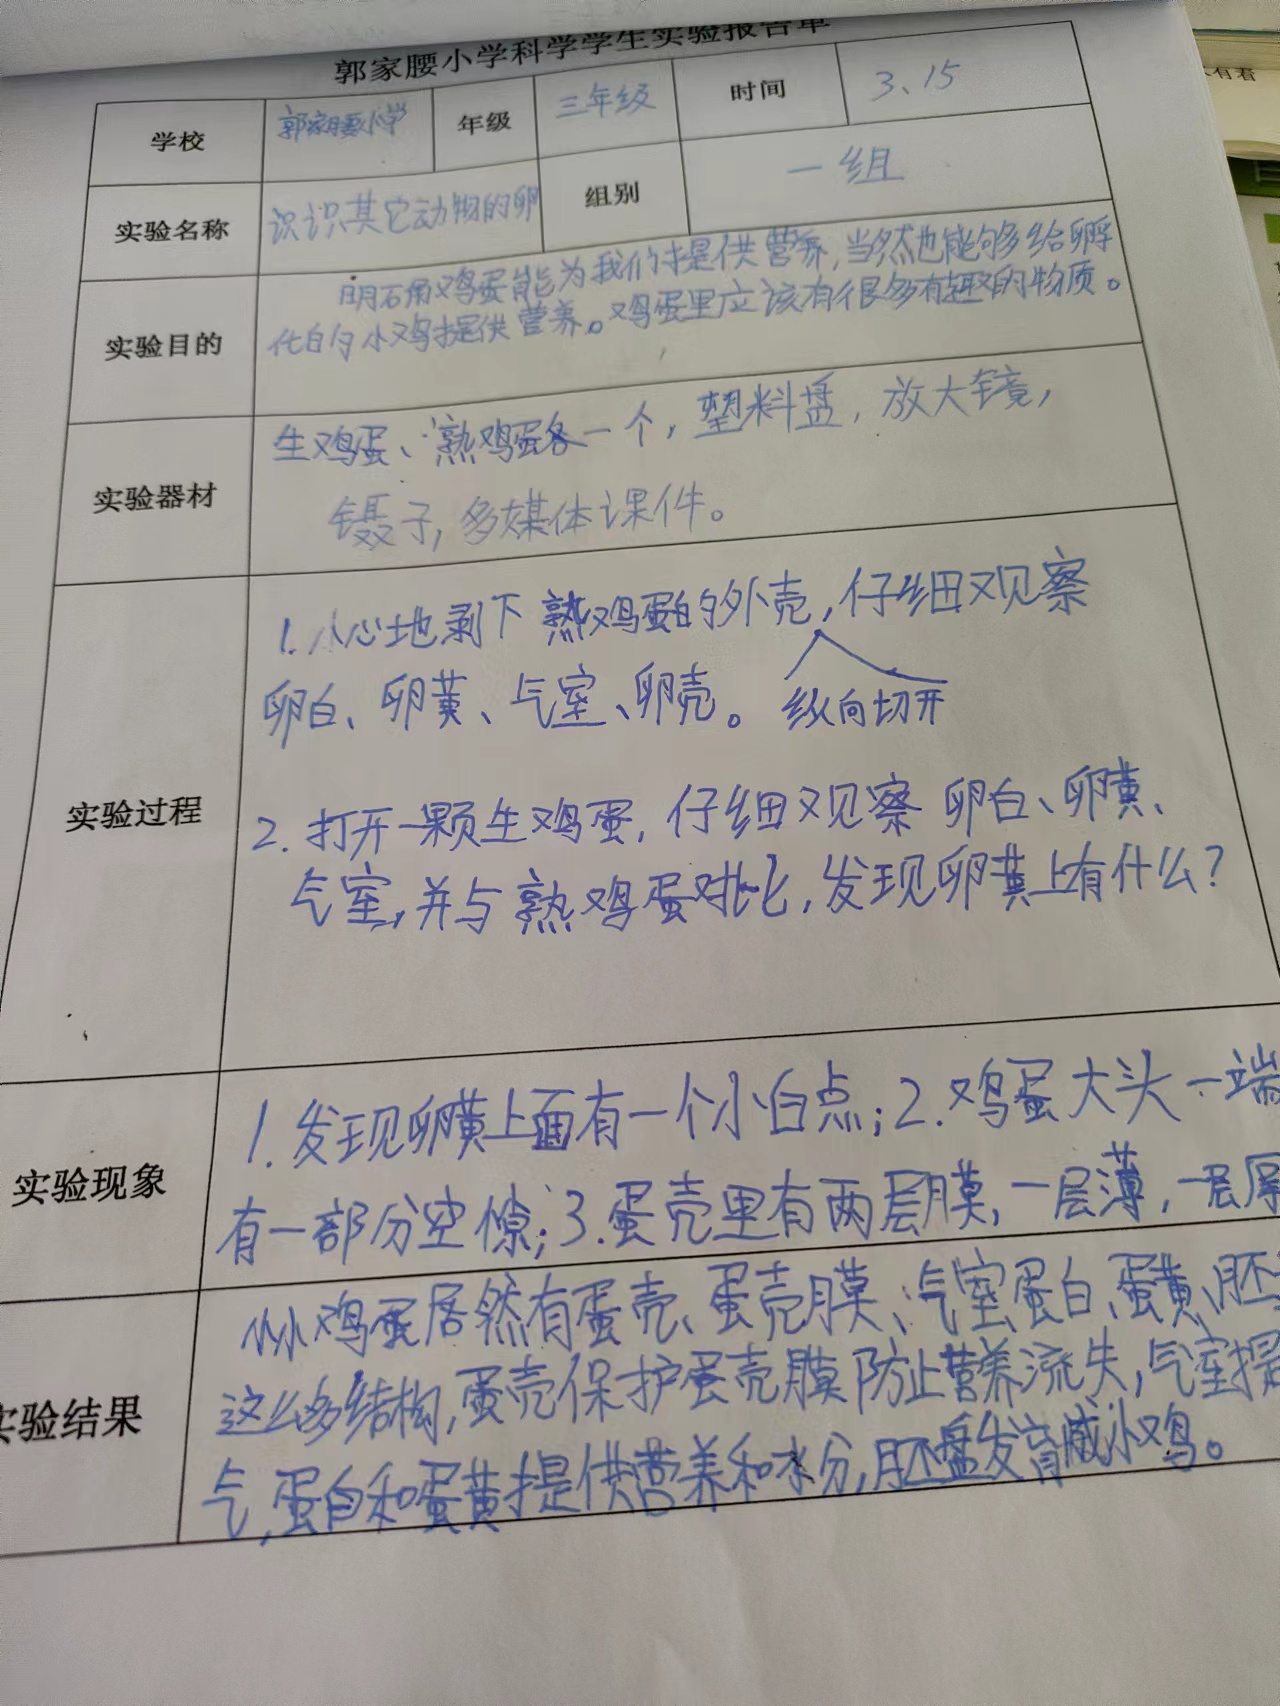 郭家腰小学科学学生实验报告单
学校 郭家腰小学 年级 三年级 时间 3、15
实验名称 识识其它动物的卵 组别 一组
实验目的
明确鸡蛋能为我们提供营养,当然也能够给孵
化的小鸡提供营养。鸡蛋里应该有很多有趣的物质。
实验器材
生鸡蛋、熟鸡蛋各一个,塑料盘,放大镜,
镊子,多媒体课件。
实验过程
1.小心地剥下熟鸡蛋的外壳,仔细观察
卵白、卵黄、气室、卵壳。 纵向切开
2.打开一颗生鸡蛋,仔细观察 卵白、卵黄、
气室,并与熟鸡蛋对比,发现卵黄上有什么?
实验现象
1.发现卵黄上面有一个小白点;2.鸡蛋大头一端
有一部分空隙;3.蛋壳里有两层膜,一层薄,一层厚
实验结果
小小鸡蛋居然有蛋壳、蛋壳膜、气室蛋白、蛋黄、胚
这么多结构,蛋壳保护蛋壳膜防止营养流失,气室提
气,蛋白和蛋黄提供营养和水分,胚盘发育成小鸡。
有看